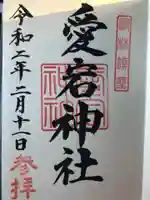 愛宕神社
令和二年二月十一日
参拝